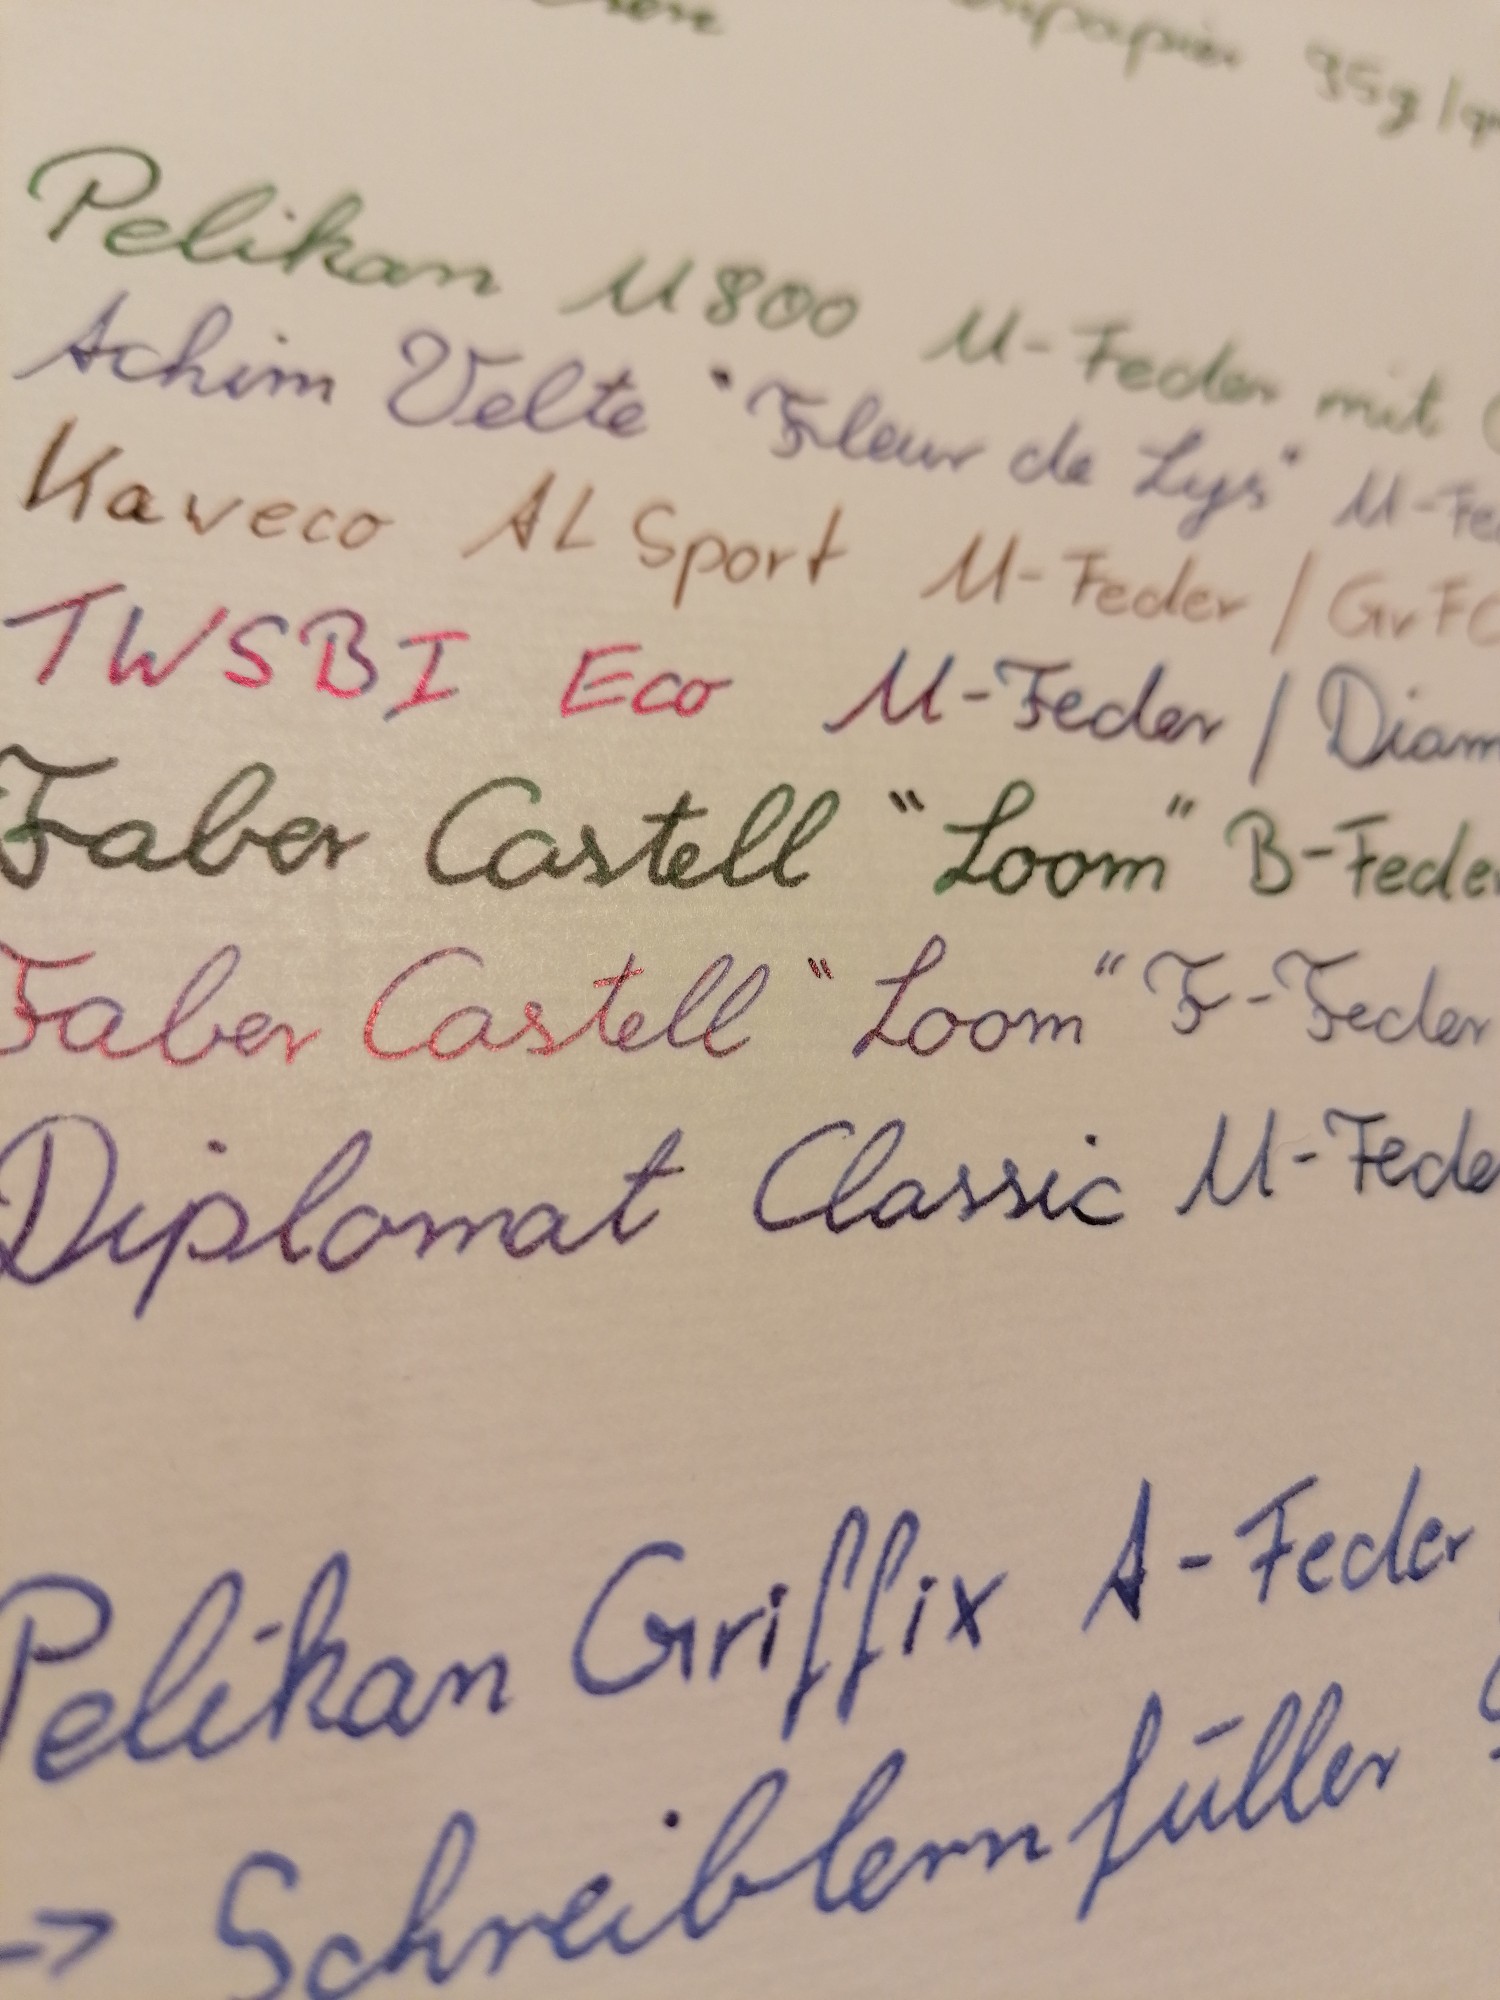 95g/
Pelikan M800 M-Feder mit
Achim Velte "Fleur de Lys" M-Fe
Kaweco AL Sport M-Feder / GvFC
TWSBI Eco M-Feder / Diam
Faber Castell "Loom" B-Feder
Faber Castell "Loom" F-Feder
Diplomat Classic M-Fede
Pelikan Griffix A-Feder
-> Schreiblernfüller